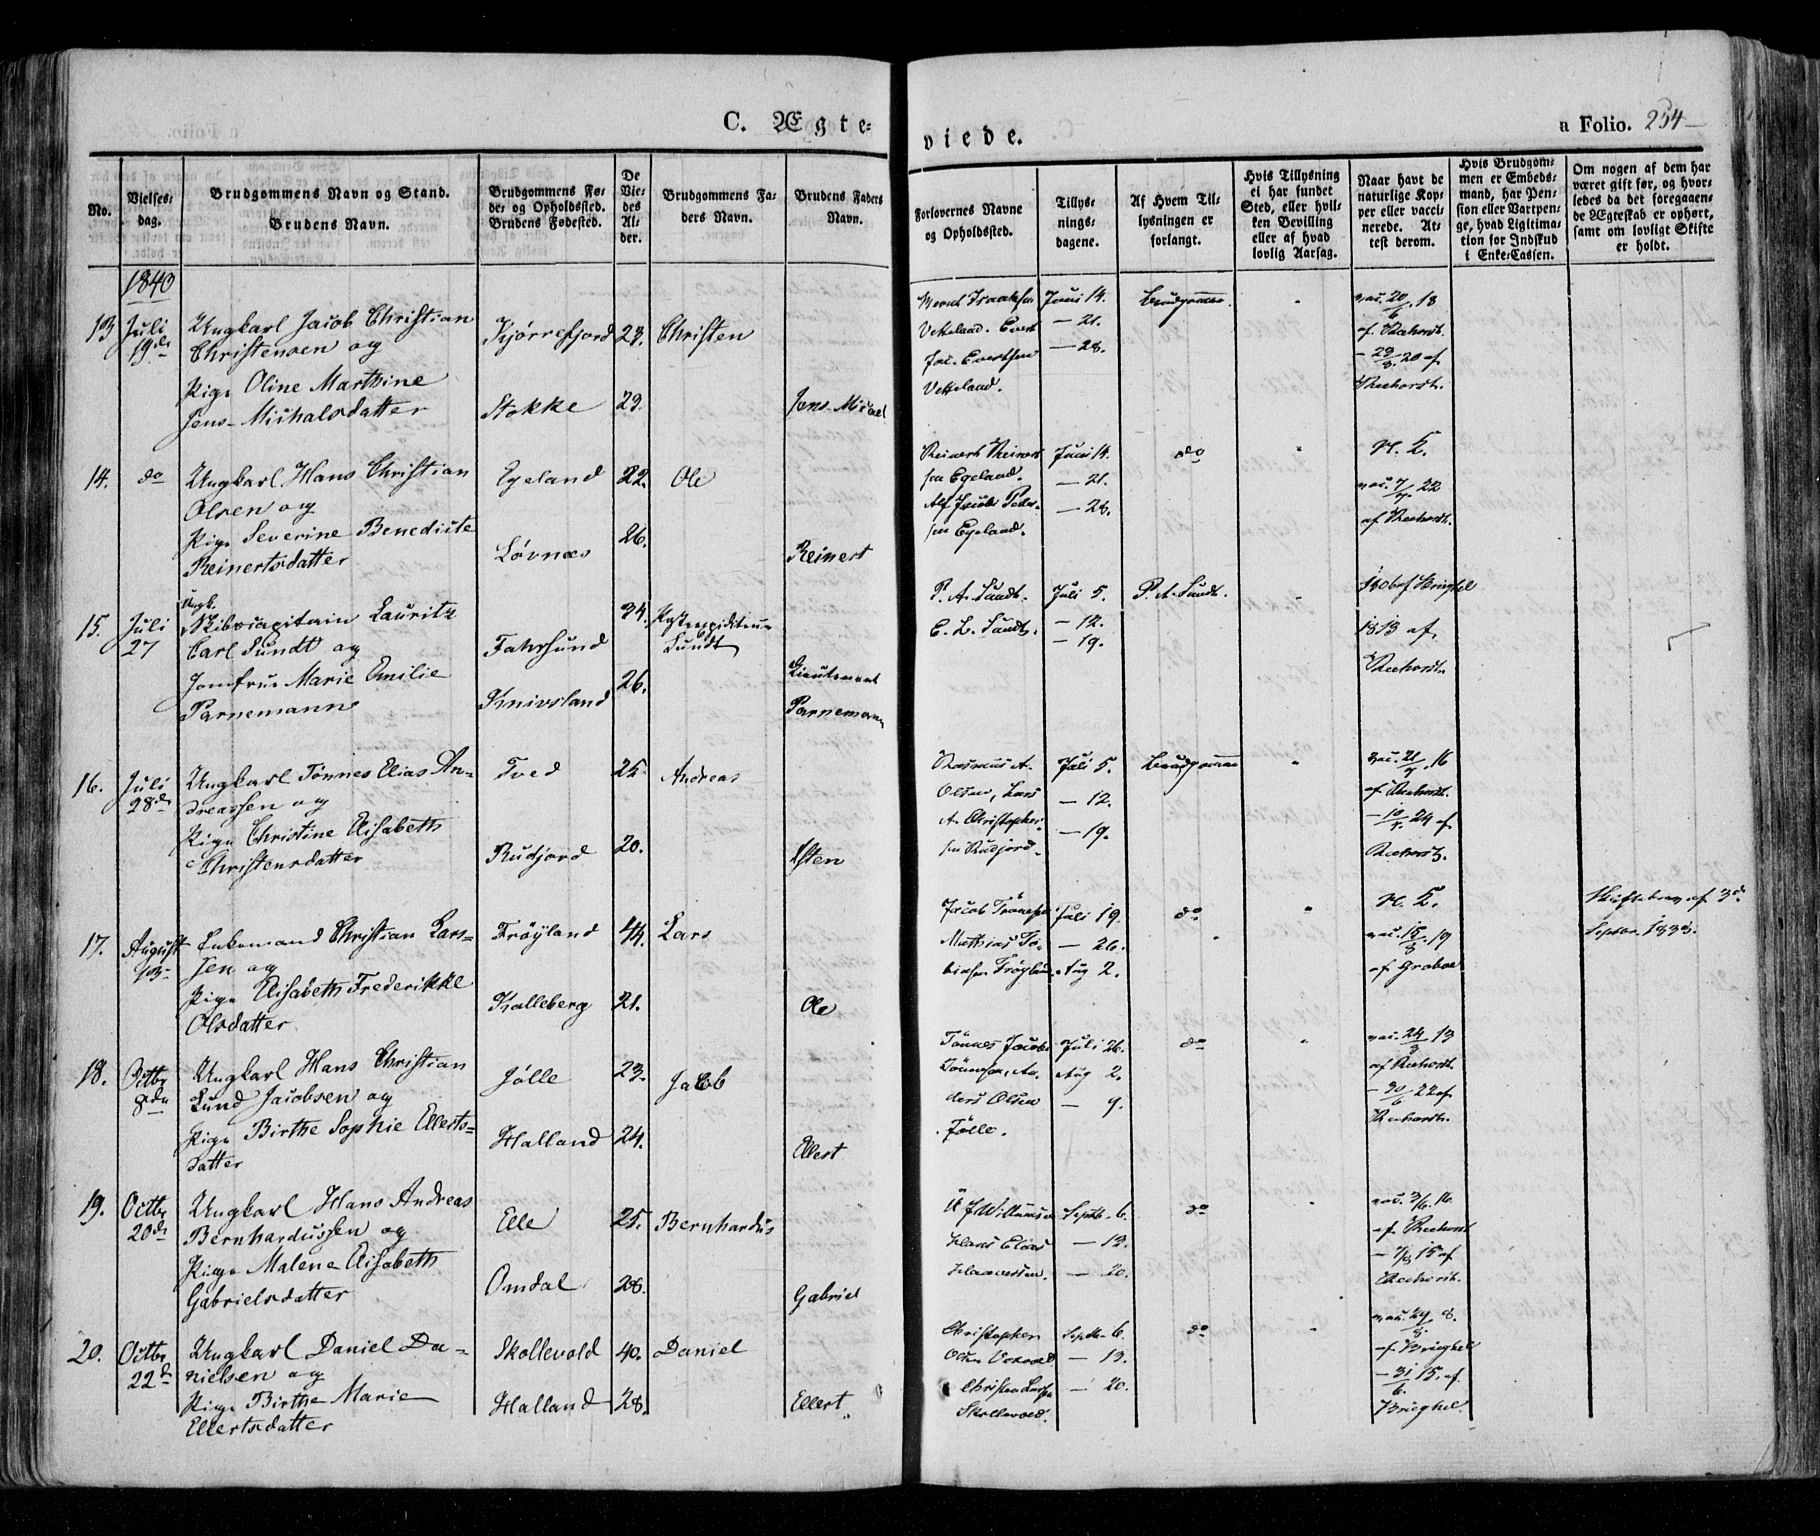 C. Ægte-
viede.
a Folio. 254
No.
Vielses-
dag.
Brudgommens Navn og Stand.
Brudens Navn.
Brudgommens Fø-
de- og Opholdssted.
Brudens Fødested.
De
Vie-
des
Al-
der.
Brudgommens Fa-
ders Navn.
Brudens Faders
Navn.
Forlovernes Navne
og Opholdssted.
Tillys-
nings-
dagene.
Af Hvem Til-
lysningen er
forlangt.
Hvis Tillysning
ei har fundet
Sted, eller hvil-
ken Bevilling
eller af hvad
lovlig Aarsag.
Naar havt de
naturlige Kop-
per eller vacci-
nerede. At-
test derom.
Hvis Brudgom-
men er Embeds-
mand, har Pen-
sion eller Vartpen-
ge, hvad Ligitima-
tion for Indskud
i Enke-Cassen.
Om nogen af dem har
været gift før, og hvor-
ledes da det foregaaen-
de Ægteskab er ophørt,
samt om lovligt Skifte
er holdt.
1840
13 Juli 19de
Ungkarl Jacob Christian
Christensen og
Pige Oline Marthine
Jens-Michalsdatter
Kjørrefjord 23. Christen
Stokke 29. Jens-Micael
Vetteland. Evert
Jac. Evertsen
Vetteland.
Juni 14.
— 21.
— 28.
Brudgommen
vac. 20/6 18
— 29/8 20 af
14. do
Ungkarl Hans Christian
Olsen og
Pige Severine Benedicte
Reinertsdatter
Egeland 22. Ole
Løvnæs 26. Reinert
Reinert Reinert-
sen Egeland.
Alf Jacob Peder-
sen Egeland.
Juni 14.
— 21.
— 28.
do
vac. 7/7 22
15. Juli 27
Ungk.
Skibscapitain Lauritz
Carl Sundt og
Jomfrue Marie Emilie
Parnemann
Fahrsund 34. Sundt
Knivsland 26. Lieutenant
Parnemann
P. A. Sundt.
E. L. Sundt.
Juli 5.
— 12.
— 19.
P. A. Sundt.
1813 af
16. Juli 28de
Ungkarl Tönnes Elias An-
dreassen og
Pige Christine Elisabeth
Christensdatter
Tved 25. Andreas
Rudjord 20.
Rasmus A.
Olsen, Lars
A. Christopher-
sen Rudjord
Juli 5.
— 12.
— 19.
Brudgommen
vac. 21/7 16
17. August 13
Enkemand Christian Lars-
sen og
Pige Elisabeth Frederikke
Olsdatter
Frøyland 44. Lars
Kalleberg 21. Ole
Jacob Tönnesen
Mathias To-
biasen Frøyland
Juli 19.
— 26.
Aug 2.
do
18. Octbr 8de
Ungkarl Hans Christian
Lund Jacobsen og
Pige Birthe Sophie Ellerts-
datter
Jölle 23. Jacob
Halland 24. Ellert
Tönnes Jacob
Tönnesen, An-
ders Olsen
Jölle.
Juli 26.
Aug 2.
— 9.
do
vac. 24/3 19
— 30/6 22 af
19. Octbr 20de
Ungkarl Hans Andreas
Bernhardussen og
Pige Malene Elisabeth
Gabrielsdatter
Elle 25. Bernhardus
Omdal 28. Gabriel
Hans Elias
Septb. 6.
— 13.
— 20.
do
vac. 3/6. 16
— 7/8 15 af
20. Octbr 22de
Ungkarl Daniel Da-
nielsen og
Pige Birthe Marie
Ellertsdatter
Skollevold 40. Daniel
Halland 28. Ellert.
Christopher
Christen Larsen
Skollevold.
Septb. 6.
— 13.
— 20.
do
af Brüghel
— 31/6. 15. af
Brüghel.